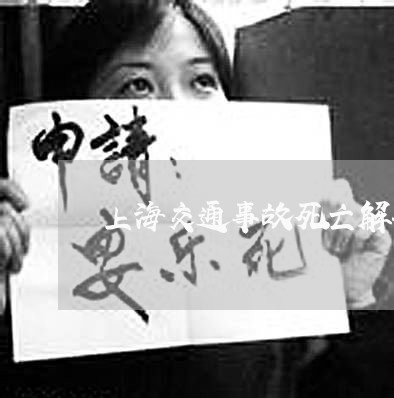 申請：
上海交通事故死亡解
安乐死